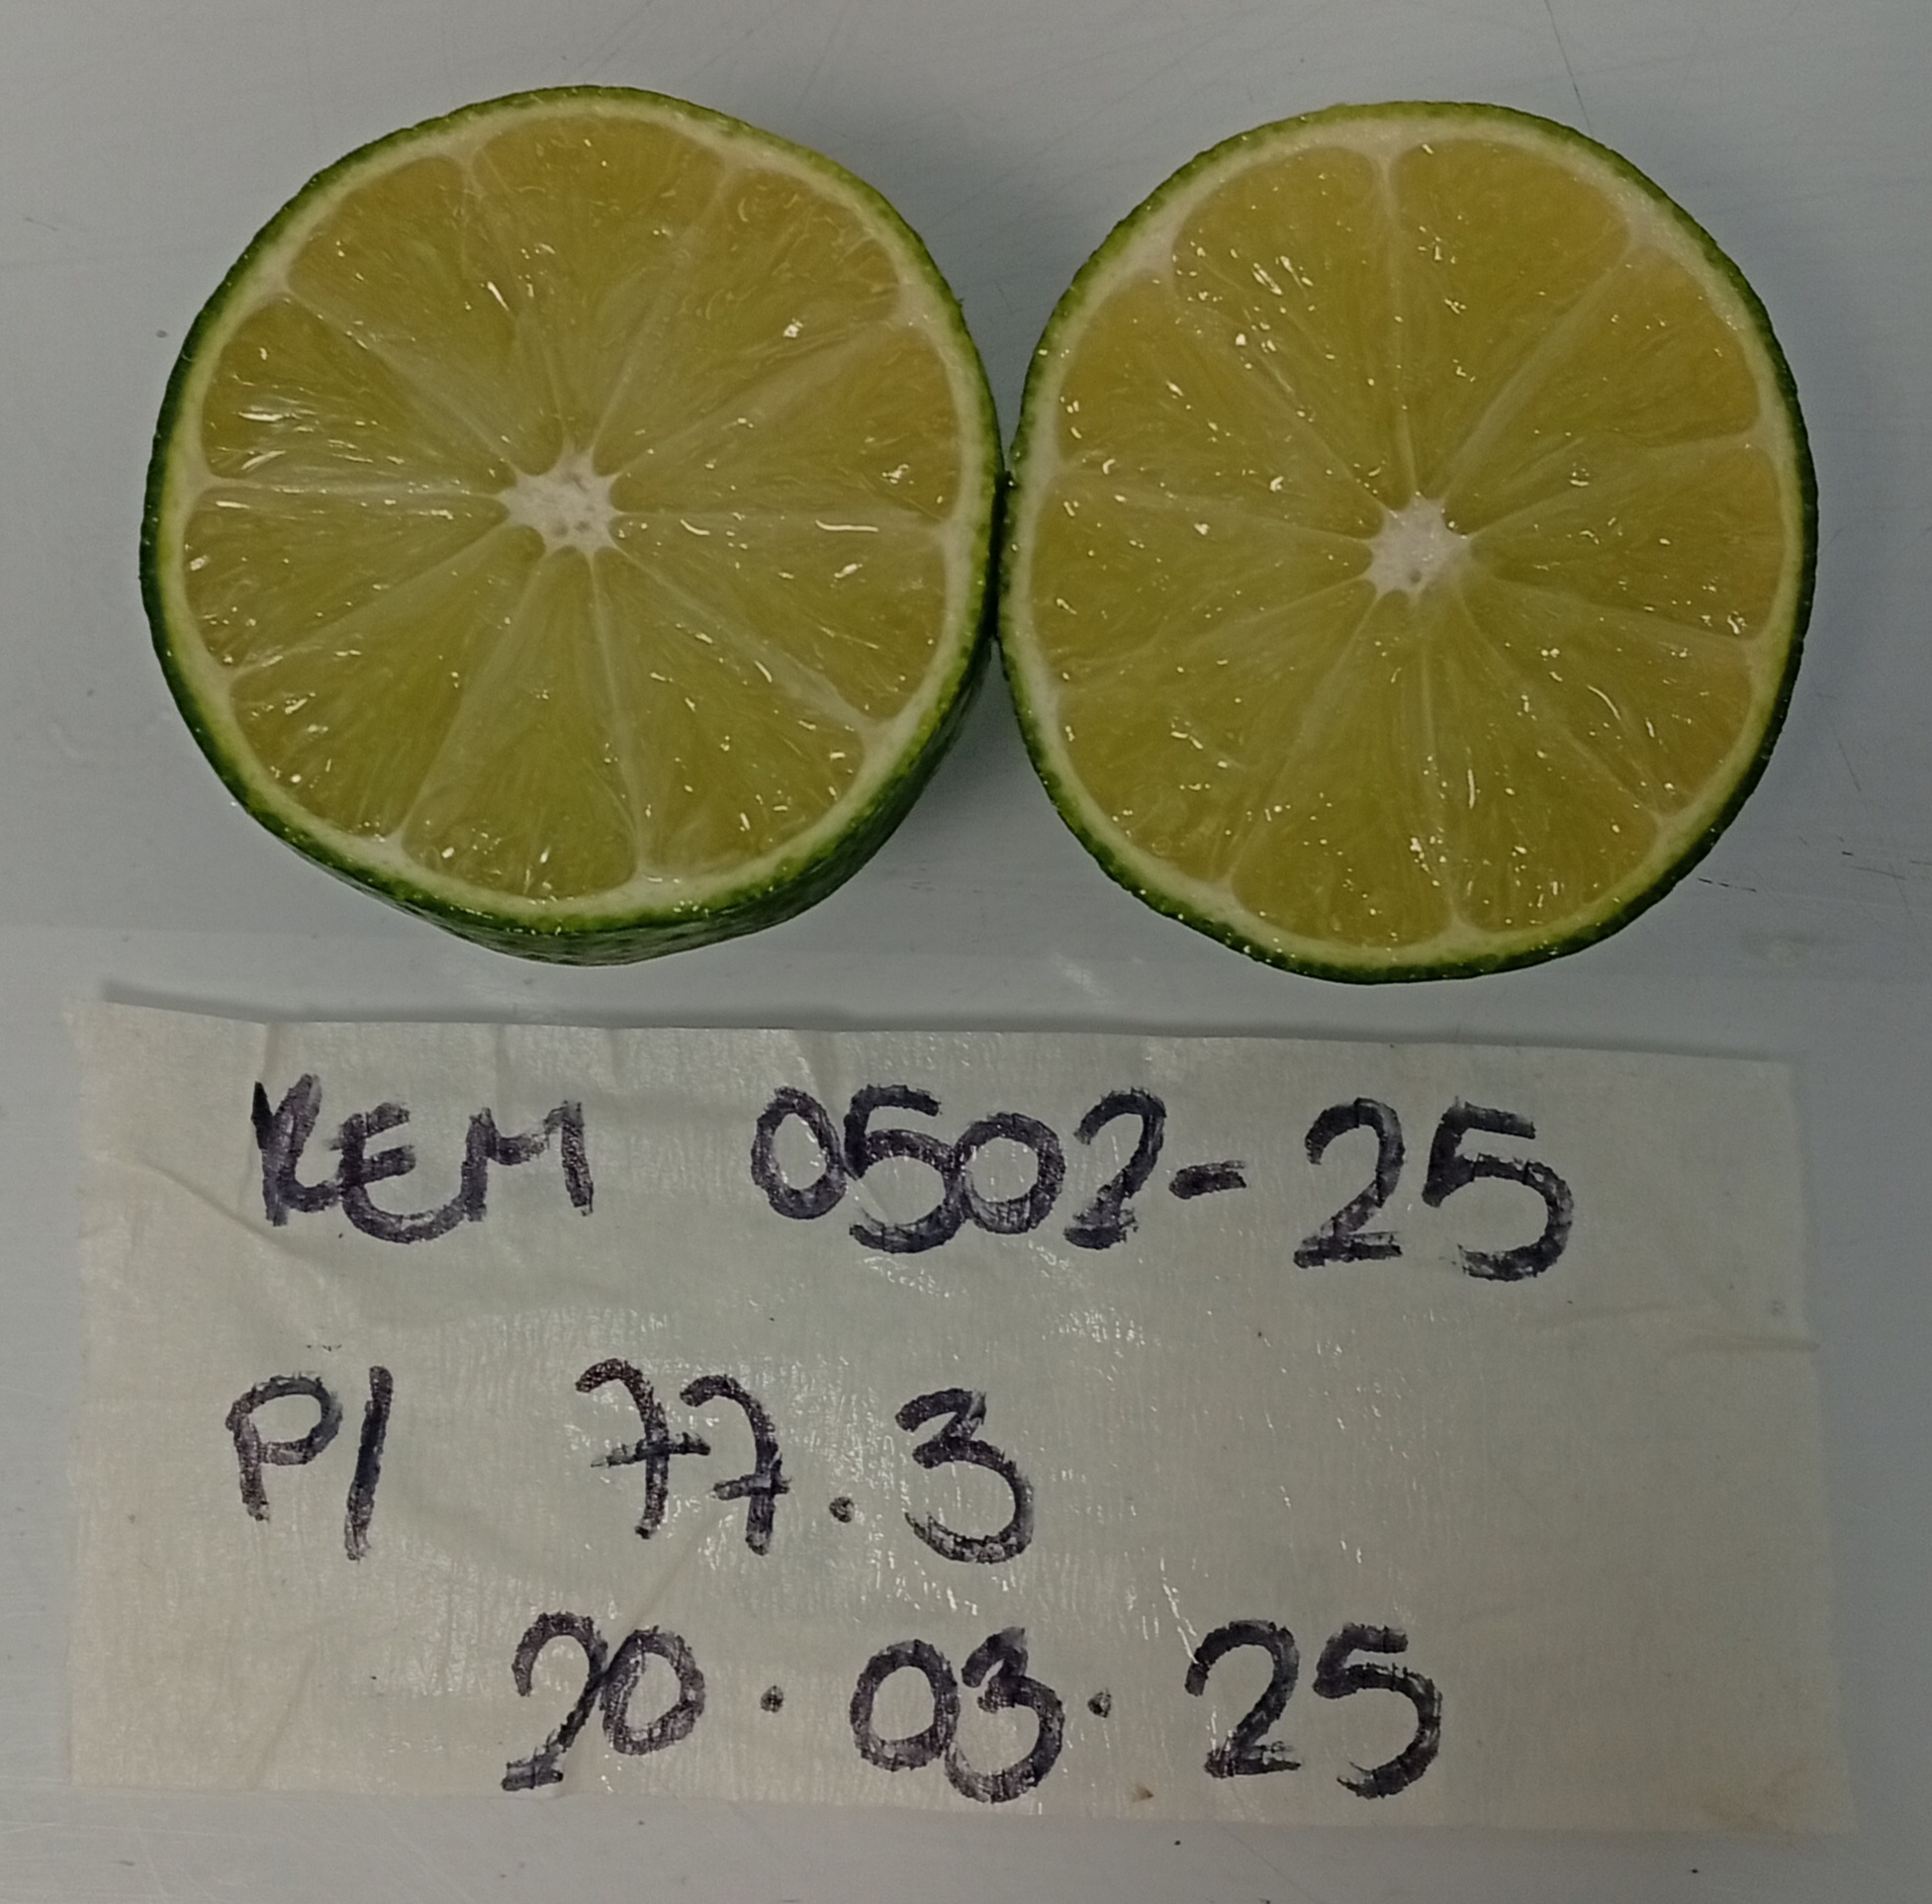 KEM 0502-25
P1 77.3
20.03.25